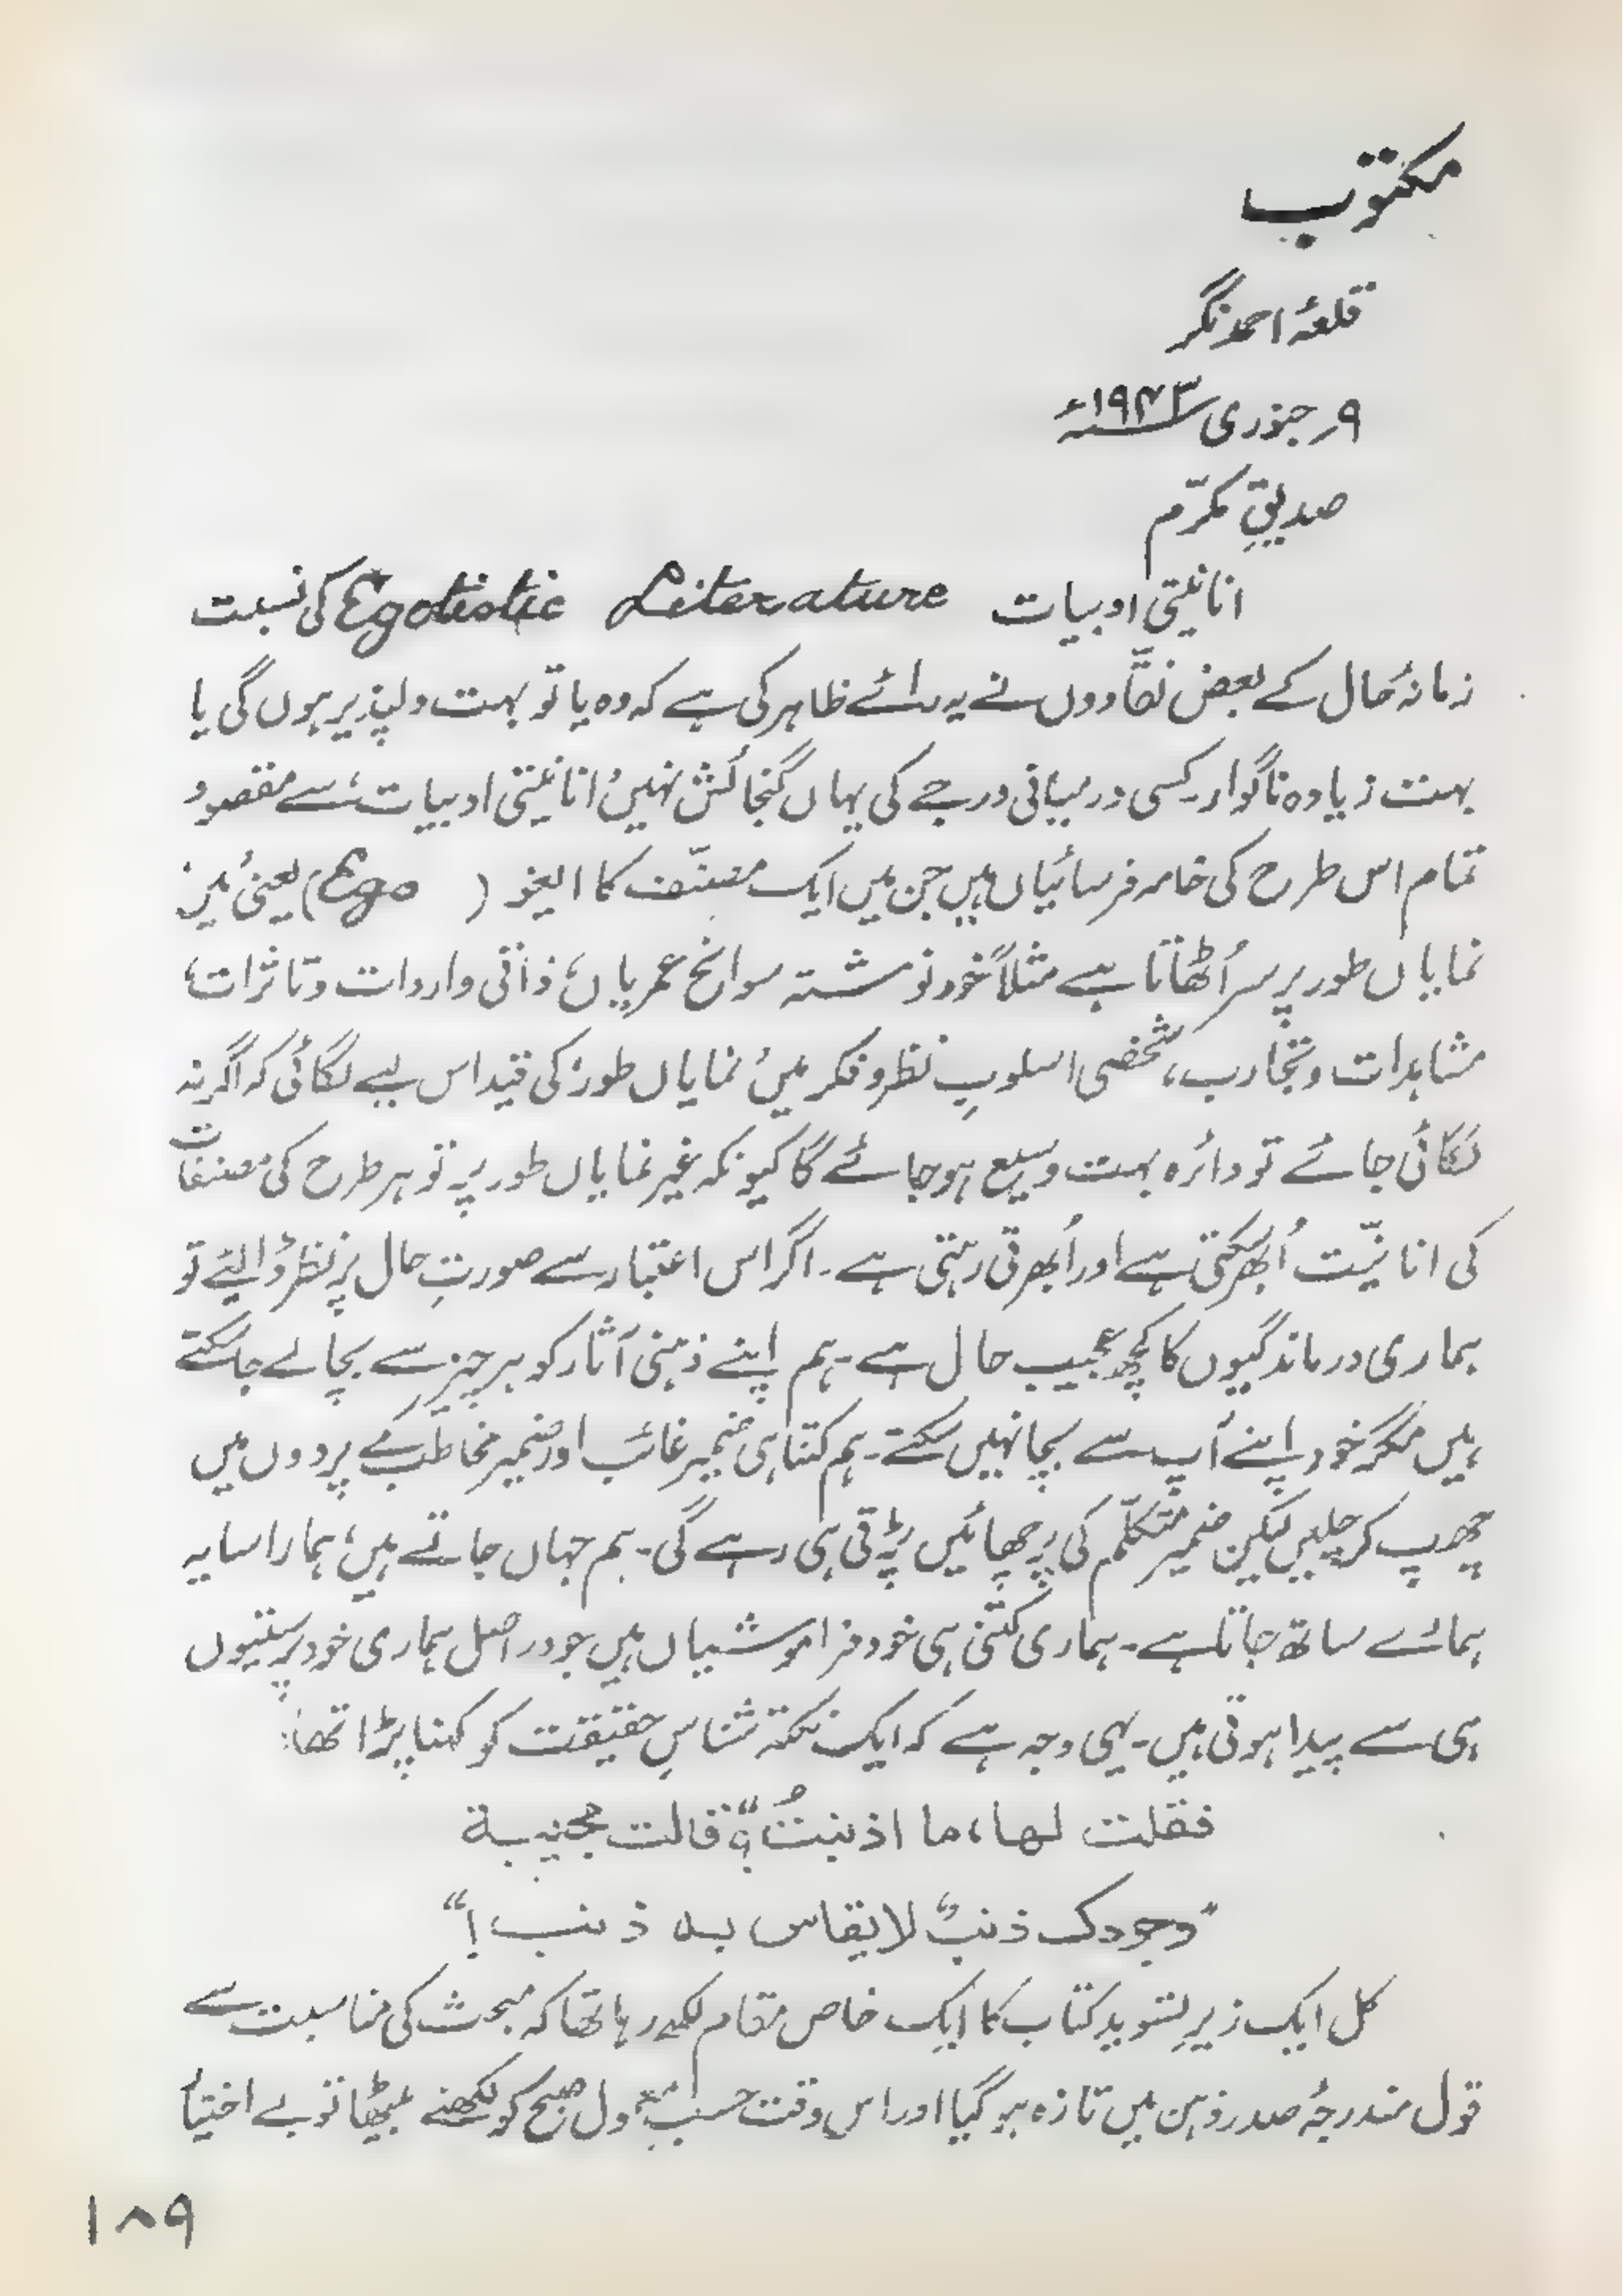 مکتوب
قلعۂ احمد نگر
۹؍ جنوری ۱۹۴۳ء
صدیقِ مکرّم
انانیتی ادبیات Egotistic Literature کی نسبت
زمانۂ حال کے بعض نقّادوں نے یہ رائے ظاہر کی ہے کہ وہ یا تو بہت دلپذیر ہوں گی یا
بہت زیادہ ناگوار۔ کسی درمیانی درجے کی یہاں گنجائش نہیں، انانیتی ادبیات، سے مقصود
تمام اس طرح کی خامہ فرسائیاں ہیں جن میں ایک مصنّف کا ایغو (Ego) یعنی ُمیں،
نمایاں طور پر سر اُٹھاتا ہے مثلاً خود نوشتہ سوانح عمریاں، ذاتی واردات و تاثرات،
مشاہدات و تجارب، شخصی اسلوبِ نظر و فکر میں ُنمایاں طور، کی قید اس لیے لگائی کہ اگر نہ
لگائی جائے تو دائرہ بہت وسیع ہو جائے گا کیونکہ غیر نمایاں طور پر تو ہر طرح کی مصنفات
کی انانیّت اُبھر سکتی ہے اور اُبھرتی رہتی ہے۔ اگر اس اعتبار سے صورتِ حال پر نظر ڈالیئے تو
ہماری درماندگیوں کا کچھ عجیب حال ہے۔ ہم اپنے ذہنی آثار کو ہر چیز سے بچا لے جا سکتے
ہیں مگر خود اپنے آپ سے بچا نہیں سکتے۔ ہم کتنا ہی ضمیرِ غائب اور ضمیرِ مخاطب کے پردوں میں
چھپ کر چلیں لیکن ضمیرِ متکلّم کی پرچھائیں پڑتی ہی رہے گی۔ ہم جہاں جاتے ہیں، ہمارا سایہ
ہمارے ساتھ جاتا ہے۔ ہماری کتنی ہی خود فراموشیاں ہیں جو دراصل ہماری خود پرستیوں
ہی سے پیدا ہوتی ہیں۔ یہی وجہ ہے کہ ایک نکتہ شناسِ حقیقت کو کہنا پڑا تھا:
فقلت لها، ما اذنبتُ؟“ قالت مجيبة
”وجودک ذنبٌ لا يقاس به ذنب!“
کل ایک زیرِ تسوید کتاب کا ایک خاص مقام لکھ رہا تھا کہ مبحث کی مناسبت سے
قول مندرجۂ صدر ذہن میں تازہ ہو گیا اور اس وقت حسبِ معمول صبح کو لکھنے بیٹھا تو بے اختیار
۱۸۹